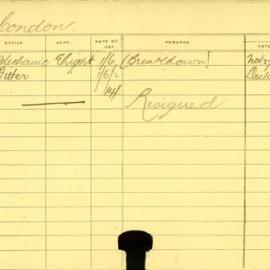 London.
OFFICE DEPT. DATE OF PAY REMARKS DATE
Mechanic 1/6 (Breakdown) Nov
Fitter 1/6½ Dec
14/ Resigned